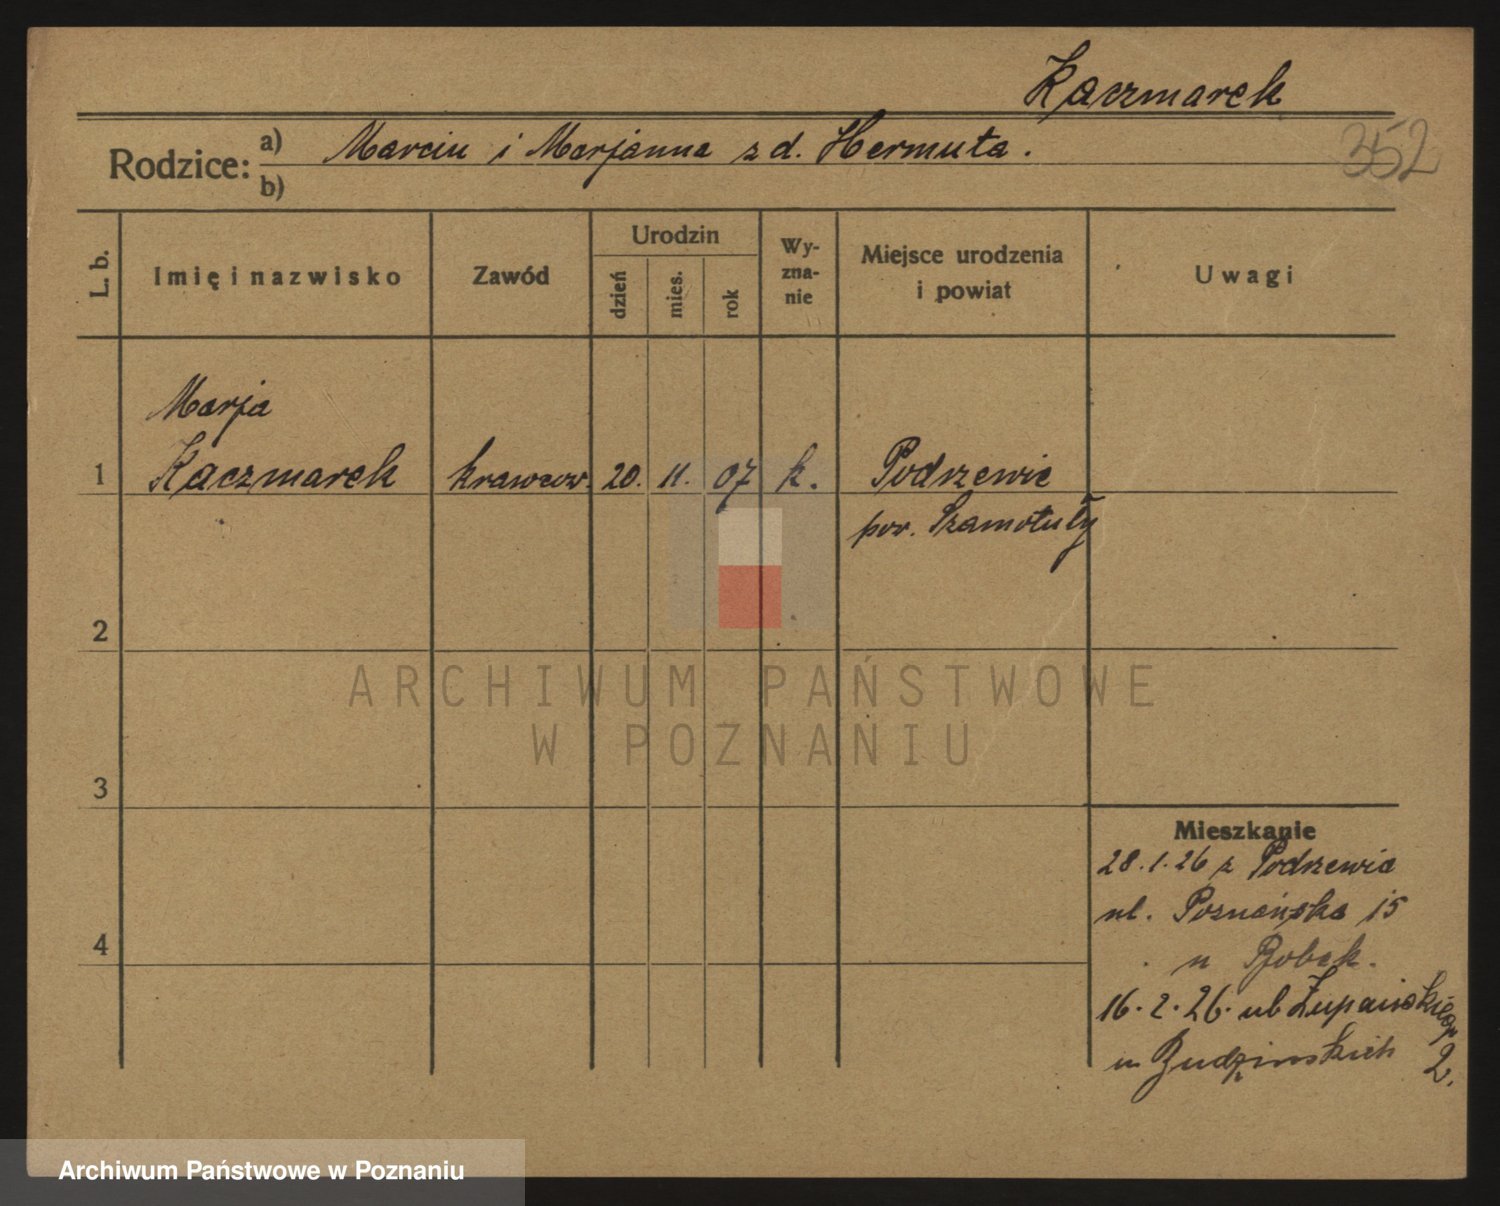 Kaczmarek
352
Rodzice: a) Marcin i Marjanna z d. Hermuta.
b)
L. b.
Imię i nazwisko
Zawód
Urodzin
dzień
mies.
rok
Wy-
zna-
nie
Miejsce urodzenia
i powiat
Uwagi
Marja
1 Kaczmarek krawcow. 20. 11. 07 k. Podrzewie
pow. Szamotuły
2
ARCHIWUM PAŃSTWOWE
W POZNANIU
3
Mieszkanie
28.1.26 z Podrzewia
ul. Poznańska 15
4
u Bobak.
16.2.26. ul Żupańskiego
u Budzinskich 2.
Archiwum Państwowe w Poznaniu